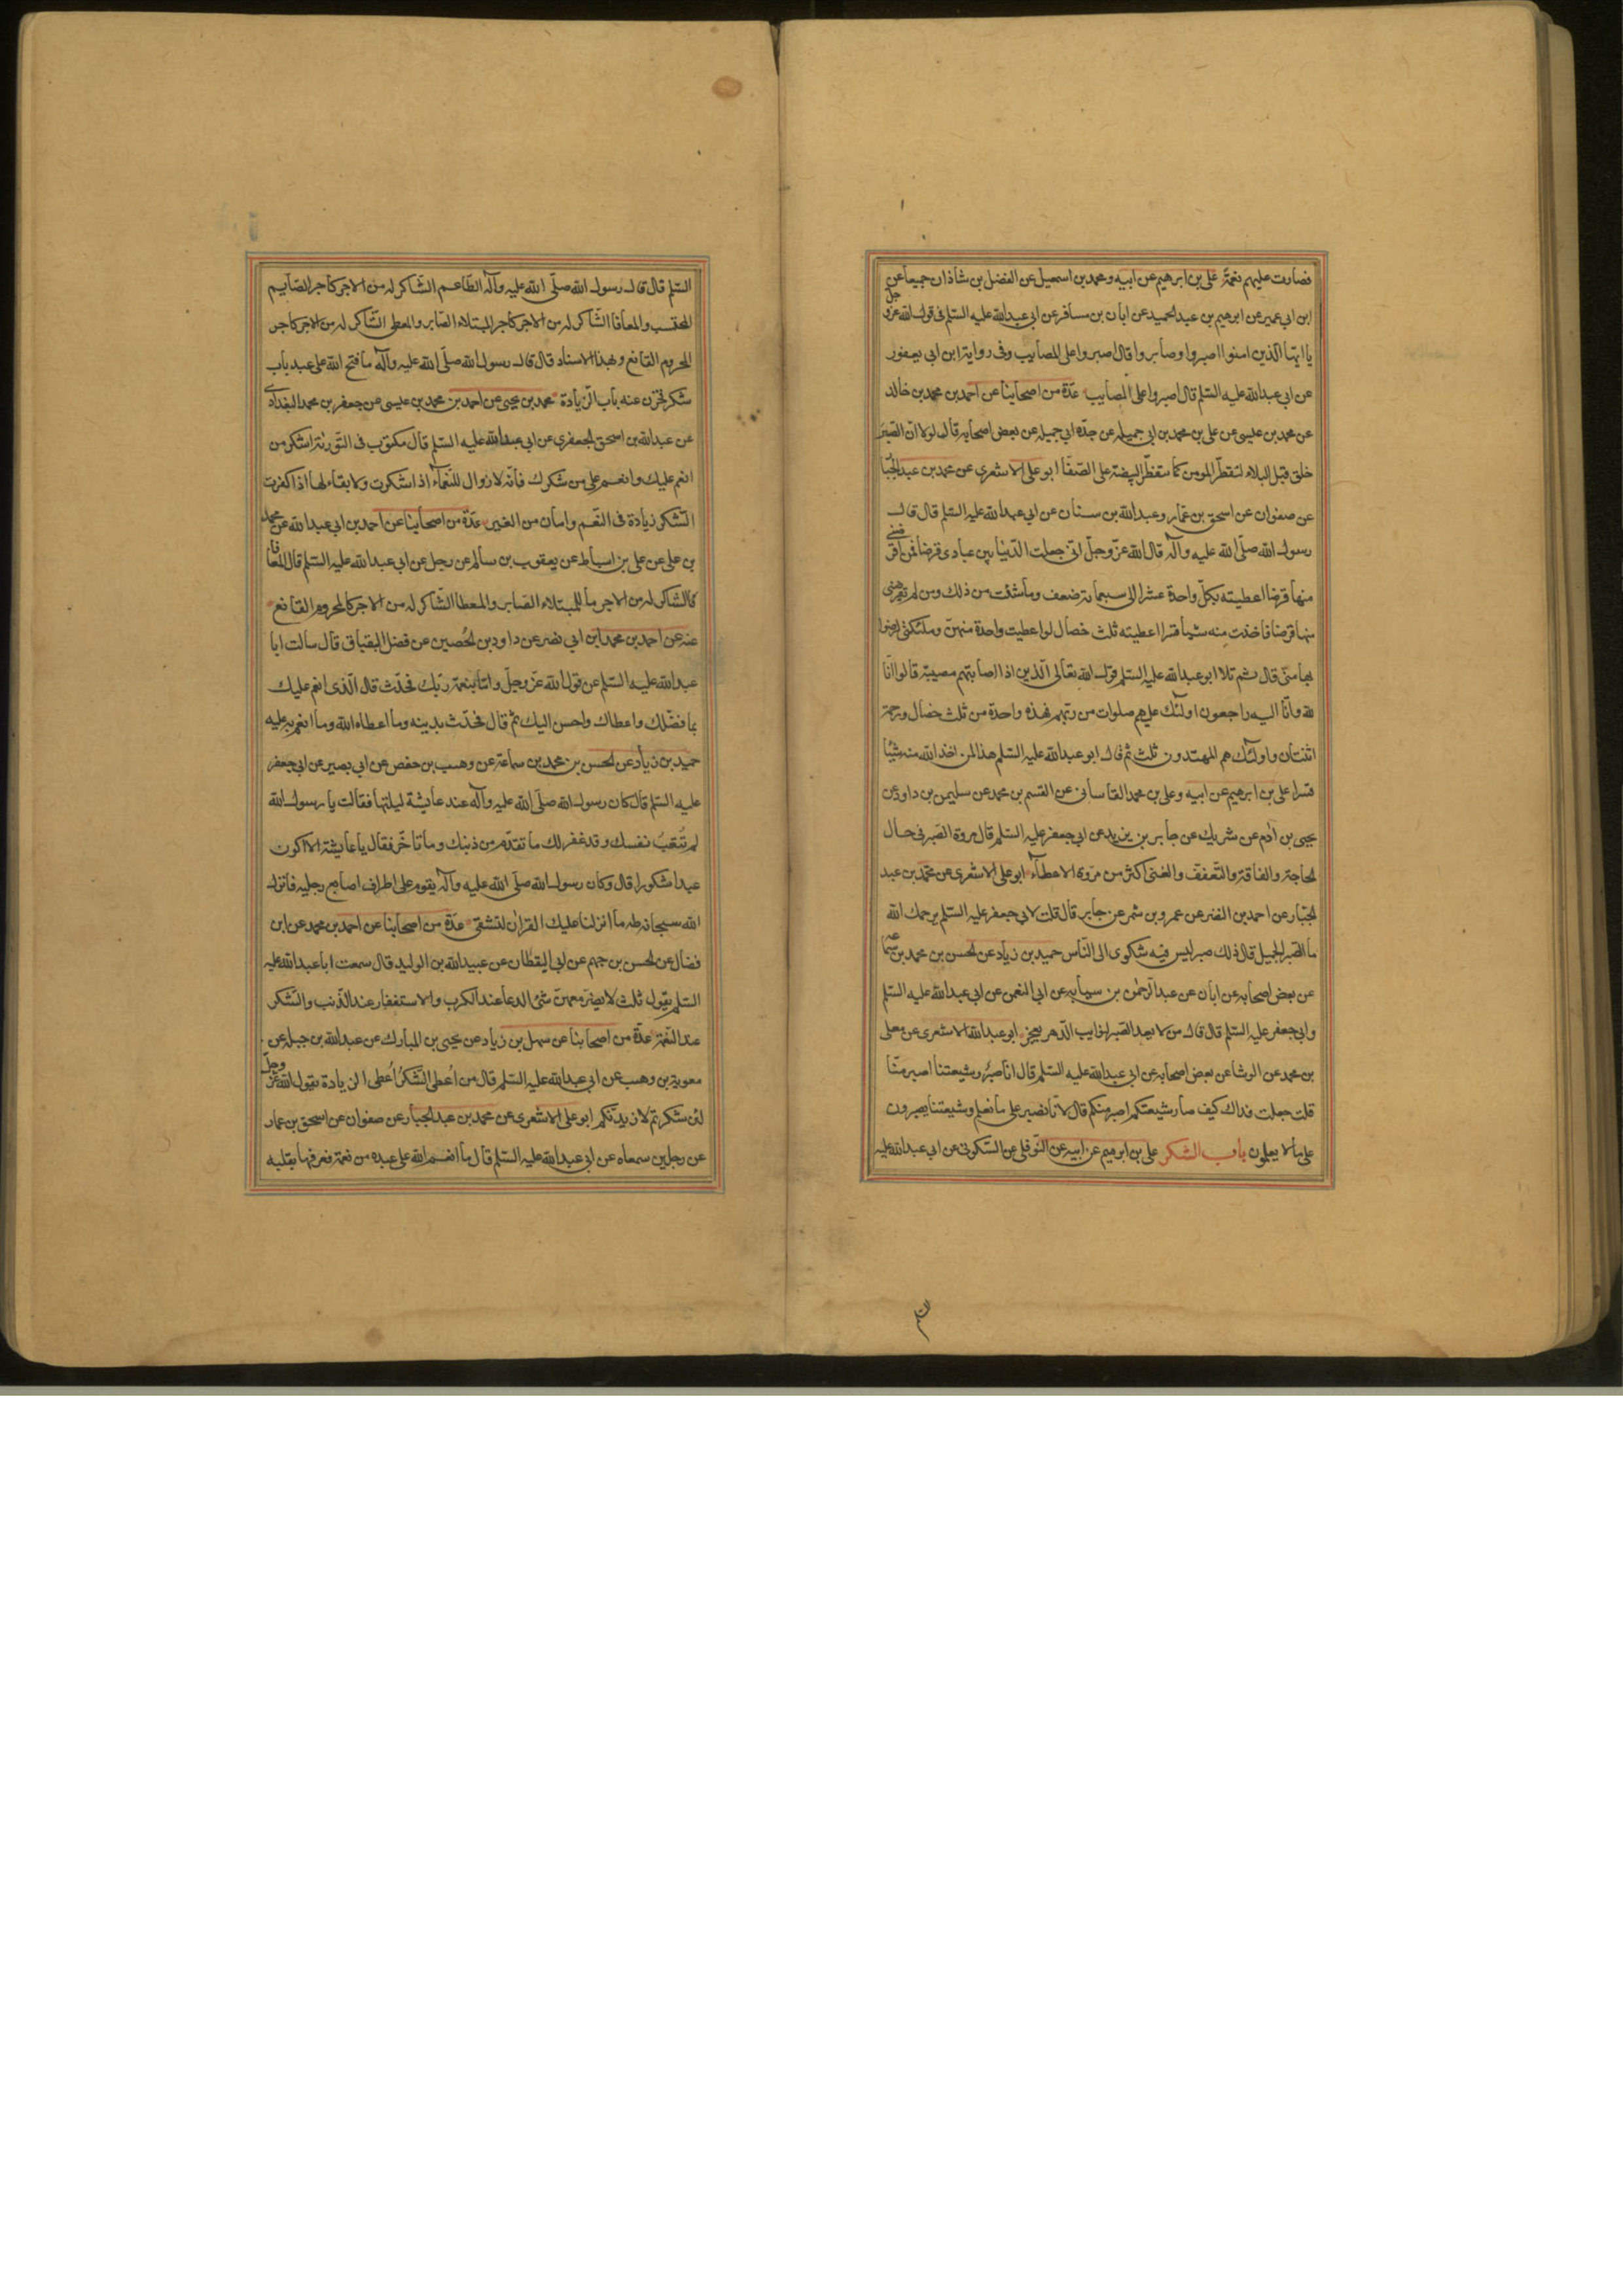 فصارت عليهم نعمة علي بن ابرهيم عن ابيه ومحمد بن اسمعيل عن الفضل بن شاذان جميعا عن
ابن ابي عمير عن ابرهيم بن عبد الحميد عن ابان بن مسافر عن ابي عبد الله عليه السلم في قول الله عز وجل
يا ايها الذين امنوا اصبروا وصابروا قال اصبروا على المصايب وفي رواية ابن ابي يعفور
عن ابي عبد الله عليه السلم قال اصبروا على المصايب عدة من اصحابنا عن احمد بن محمد بن خالد
عن محمد بن عيسى عن علي بن محمد بن ابي جميله عن جده ابي جميله عن بعض اصحابه قال لولا ان الصبر
خلق قبل البلاء لتفطر المومن كما تتفطر البيضة على الصفا ابو علي الاشعري عن محمد بن عبد الجبا
عن صفوان عن اسحق بن عمار وعبد الله بن سنان عن ابي عبد الله عليه السلم قال قال
رسول الله صلى الله عليه وآله قال الله عز وجل اني جعلت الدنيا بين عبادي قرضا فمن اقرضني
منها قرضا اعطيته بكل واحدة عشرا الى سبعمائة ضعف وما شئت من ذلك ومن لم يقرضني
منها قرضا فاخذت منه شيئا قسرا اعطيته ثلث خصال لو اعطيت واحدة منهن وملئكتي لرضوا
بها مني قال ثم تلا ابو عبد الله عليه السلم قول الله تعالى الذين اذا اصابتهم مصيبة قالوا انا
لله وانا اليه راجعون اولئك عليهم صلوات من ربهم فهذه واحدة من ثلث خصال ورحمة
اثنتان واولئك هم المهتدون ثلث ثم قال ابو عبد الله عليه السلم هذا لمن اخذ الله منه شيئا
قسرا علي بن ابرهيم عن ابيه وعلي بن محمد القاساني عن القسم بن محمد عن سليمن بن داود عن
يحيى بن آدم عن شريك عن جابر بن يزيد عن ابي جعفر عليه السلم قال مروة الصبر في حال
الحاجة والفاقة والتعفف والغنى اكثر من مروة الاعطاء ابو علي الاشعري عن محمد بن عبد
الجبار عن احمد بن النضر عن عمرو بن شمر عن جابر قال قلت لابي جعفر عليه السلم يرحمك الله
ما الصبر الجميل قال ذلك صبر ليس فيه شكوى الى الناس حميد بن زياد عن الحسن بن محمد بن سماعه
عن بعض اصحابه عن ابان عن عبد الرحمن بن سيابه عن ابي النعمن عن ابي عبد الله عليه السلم
وابي جعفر عليه السلم قال قال من لا يعد الصبر لنوايب الدهر يعجز ابو عبد الله الاشعري عن معلى
بن محمد عن الوشا عن بعض اصحابه عن ابي عبد الله عليه السلم قال انا صبر وشيعتنا اصبر منا
قلت جعلت فداك كيف صار شيعتكم اصبر منكم قال لانا نصبر على ما نعلم وشيعتنا يصبرون
على ما لا يعلمون باب الشكر علي بن ابرهيم عن ابيه عن النوفلي عن السكوني عن ابي عبد الله عليه
السلم
السلم قال قال رسول الله صلى الله عليه وآله الطاعم الشاكر له من الاجر كاجر الصايم
المحتسب والمعافا الشاكر له من الاجر كاجر المبتلاء الصابر والمعطى الشاكر له من الاجر كاجر
المحروم القانع وبهذا الاسناد قال قال رسول الله صلى الله عليه وآله ما فتح الله على عبد باب
شكر فخزن عنه باب الزيادة محمد بن يحيى عن احمد بن محمد بن عيسى عن جعفر بن محمد البغدادي
عن عبد الله بن اسحق الجعفري عن ابي عبد الله عليه السلم قال مكتوب في التورية اشكر من
انعم عليك وانعم على من شكرك فانه لا زوال للنعماء اذا شكرت ولا بقاء لها اذا كفرت
الشكر زيادة في النعم وامان من الغير عدة من اصحابنا عن احمد بن ابي عبد الله عن محمد
بن علي عن علي بن اسباط عن يعقوب بن سالم عن رجل عن ابي عبد الله عليه السلم قال المعافا
الشاكر له من الاجر ما للمبتلاء الصابر والمعطا الشاكر له من الاجر كالمحروم القانع
عنه عن احمد بن محمد ابن ابي نصر عن داود بن الحصين عن فضل البقباق قال سالت ابا
عبد الله عليه السلم عن قول الله عز وجل واما بنعمة ربك فحدث قال الذي انعم عليك
بما فضلك واعطاك واحسن اليك ثم قال فحدث بدينه وما اعطاه الله وما انعم به عليه
حميد بن زياد عن الحسن بن محمد بن سماعة عن وهب بن حفص عن ابي بصير عن ابي جعفر
عليه السلم قال كان رسول الله صلى الله عليه وآله عند عايشة ليلتها فقالت يا رسول الله
لم تتعب نفسك وقد غفر لك ما تقدم من ذنبك وما تاخر فقال يا عايشة الا اكون
عبدا شكورا قال وكان رسول الله صلى الله عليه وآله يقوم على اطراف اصابع رجليه فانزل
الله سبحانه طه ما انزلنا عليك القران لتشقى عدة من اصحابنا عن احمد بن محمد عن ابن
فضال عن الحسن بن جهم عن ابي اليقظان عن عبيد الله بن الوليد قال سمعت ابا عبد الله عليه
السلم يقول ثلث لا يضر معهن شئ الدعا عند الكرب والاستغفار عند الذنب والشكر
عند النعمة عدة من اصحابنا عن سهل بن زياد عن يحيى بن المبارك عن عبد الله بن جبله عن
معوية بن وهب عن ابي عبد الله عليه السلم قال من اعطي الشكر اعطى الزيادة يقول الله عز وجل
لئن شكرتم لازيدنكم ابو علي الاشعري عن محمد بن عبد الجبار عن صفوان عن اسحق بن عمار
عن رجلين سمعاه عن ابي عبد الله عليه السلم قال ما انعم الله على عبده من نعمة فعرفها بقلبه